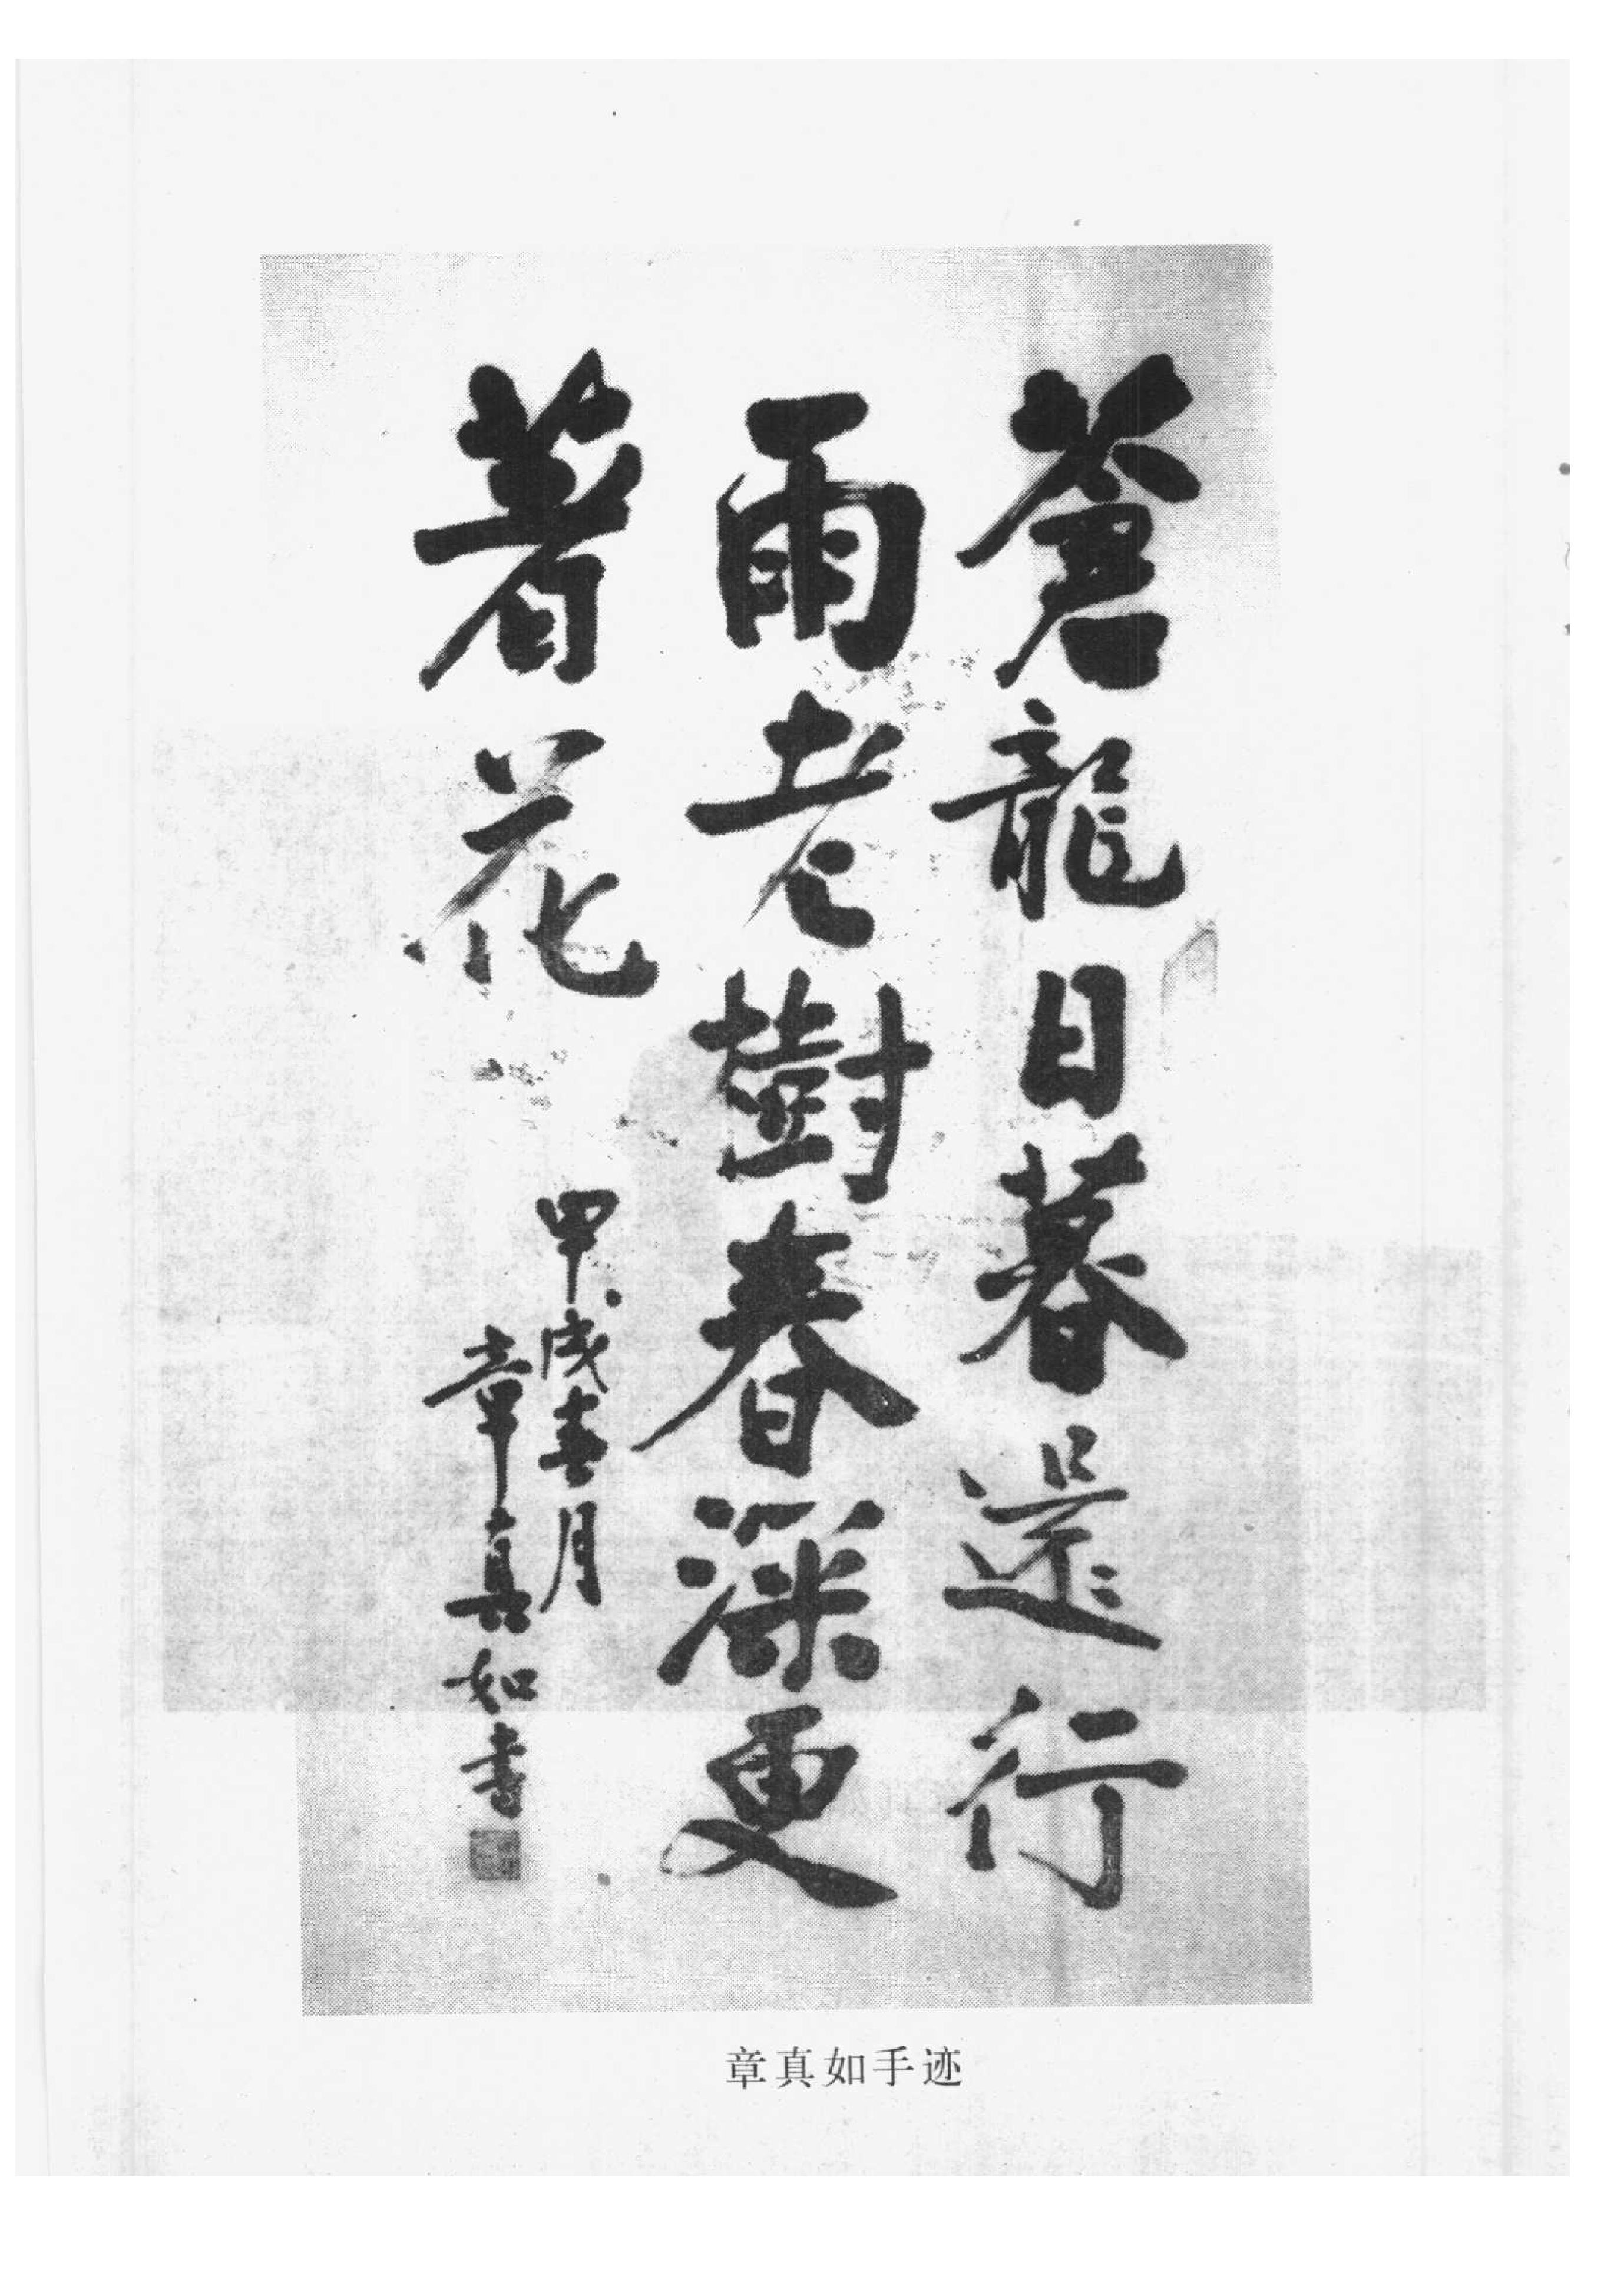 蒼龍日暮還行
雨老樹春深更
著花
甲戌春月
章真如書
章真如手迹